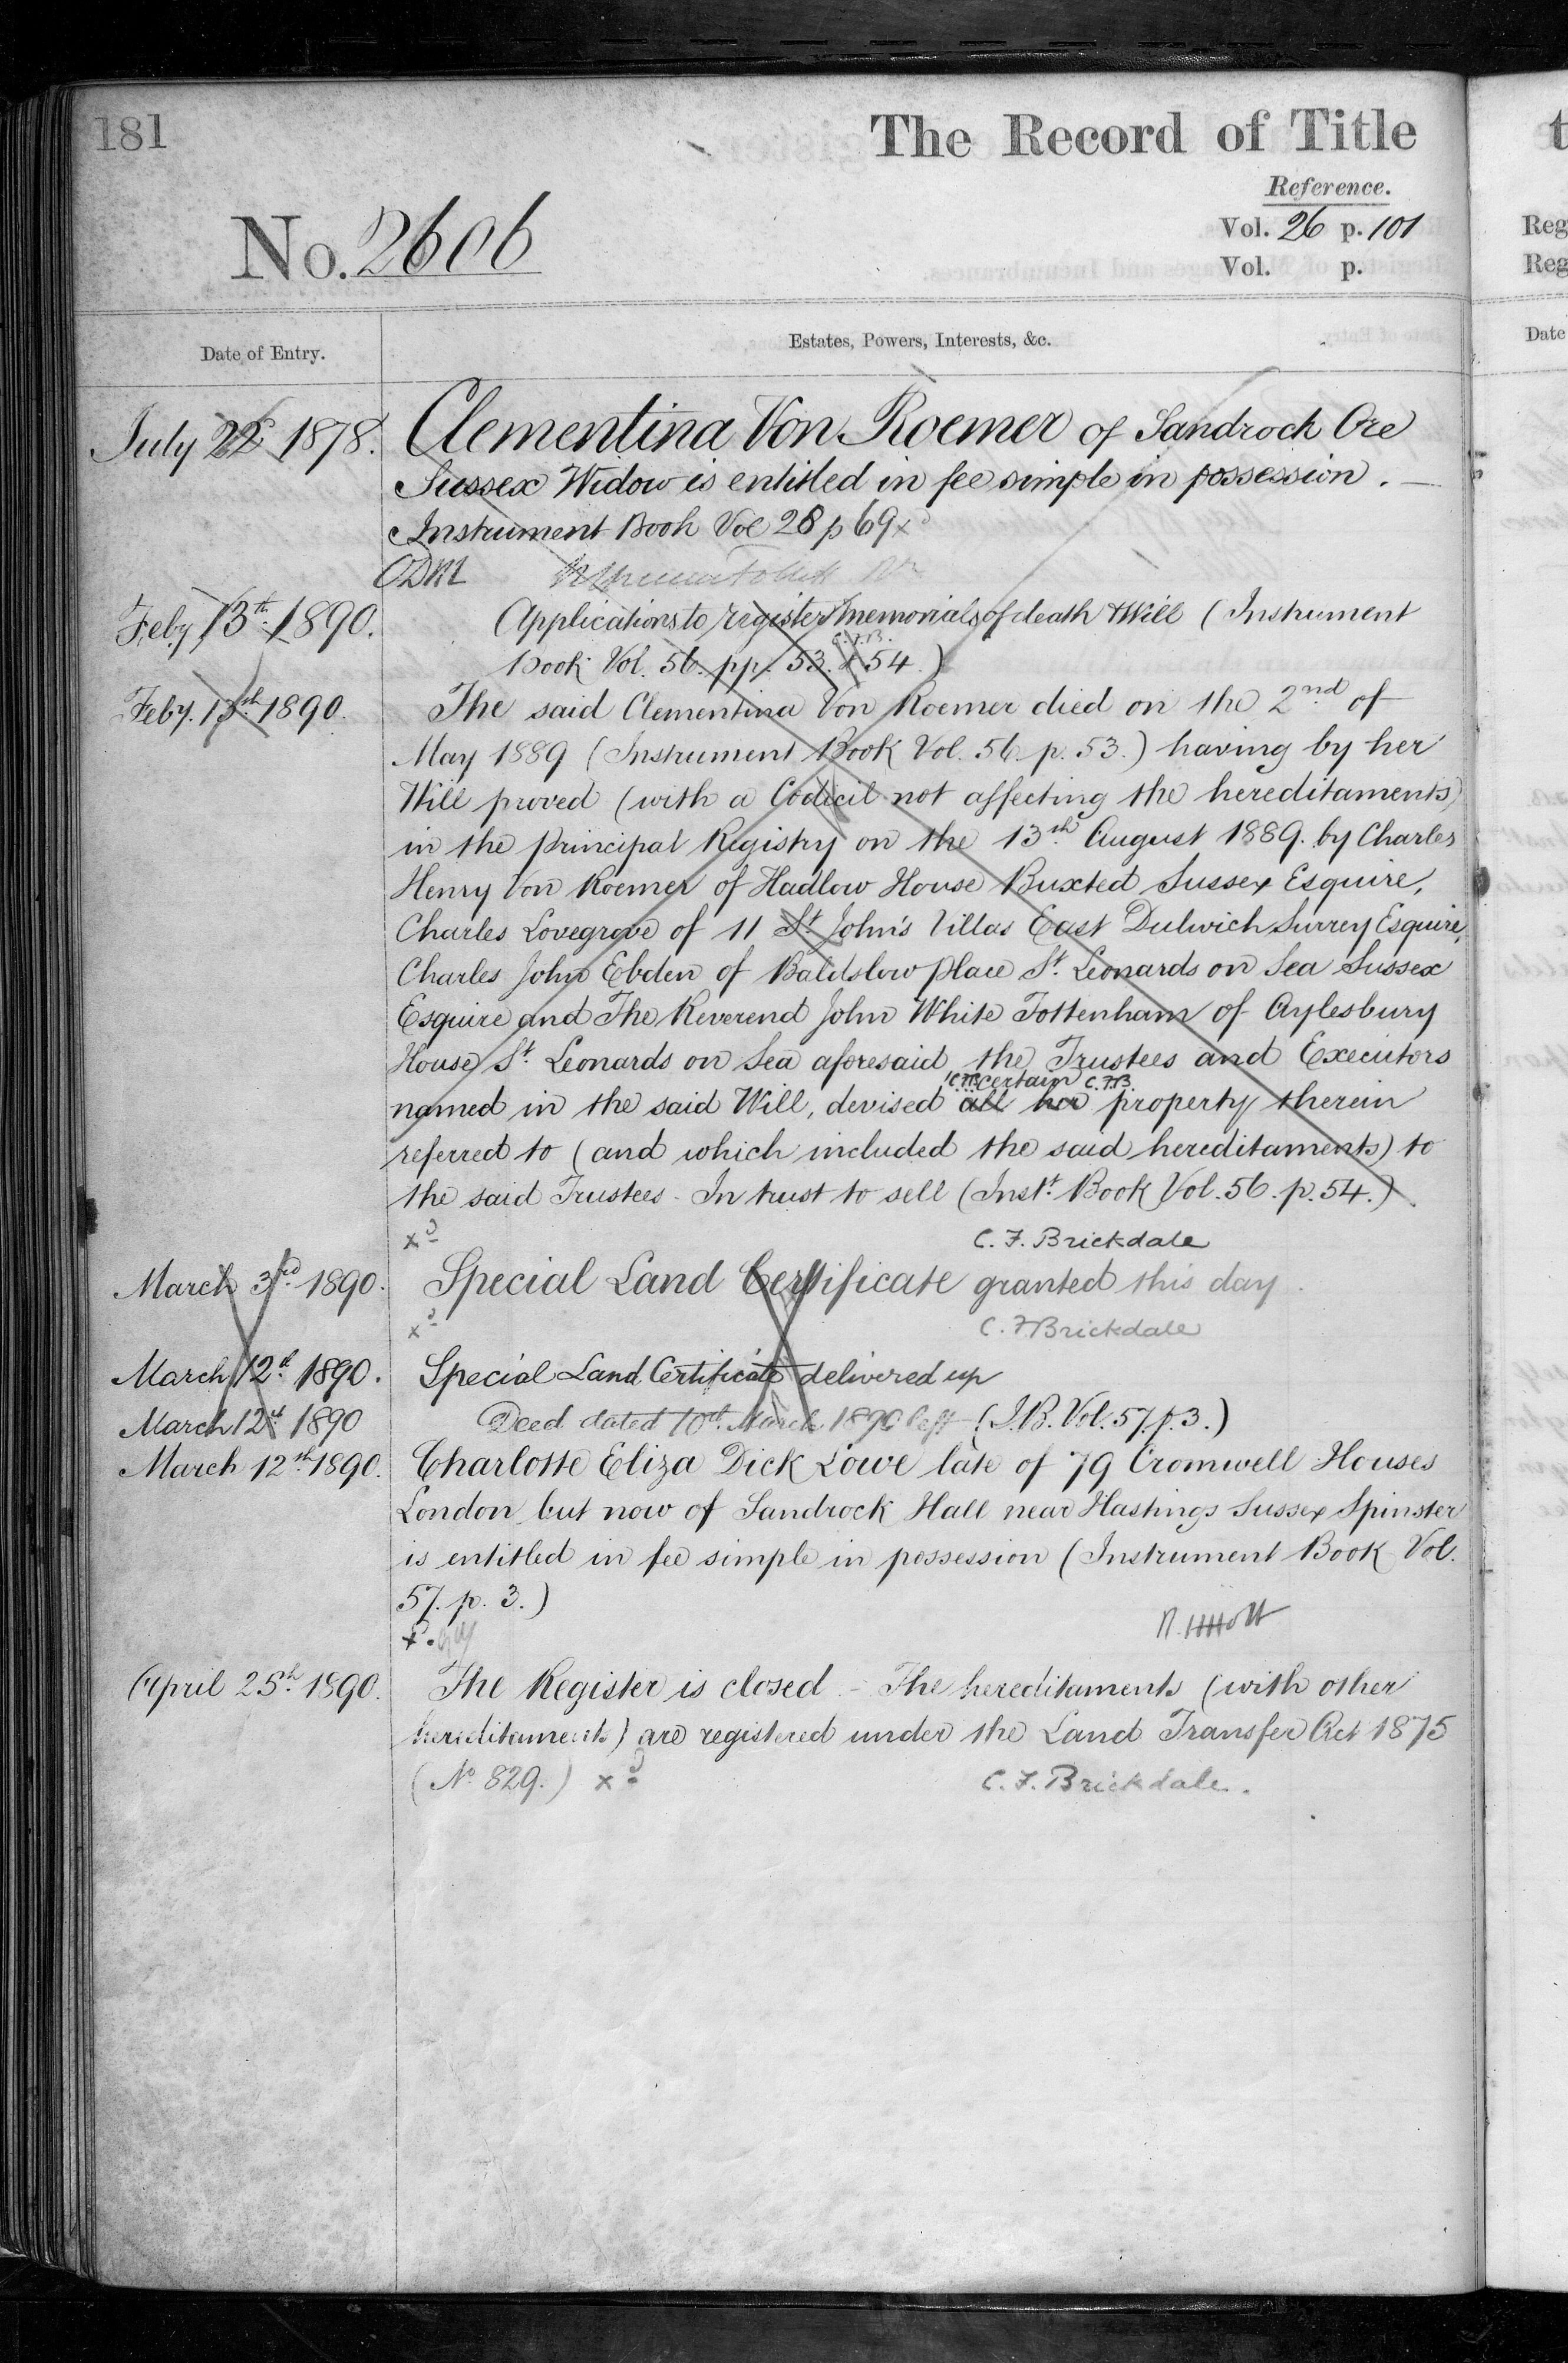 181
The Record of Title
Reference.
No. 2606
Vol. 26 p. 101
Vol. p.
Date of Entry.
Estates, Powers, Interests, &c.
July 22 1878. Clementina Von Roemer of Sandrock Ore
Sussex Widow is entitled in fee simple in possession. —
Instrument Book Vol 28 p 69 xd
ODM
Feby 13th 1890. Applications to register memorials of death & Will (Instrument
C.F.B.
Book Vol. 56. pp. 53. & 54.)
Feby. 13th 1890. The said Clementina Von Roemer died on the 2nd of
May 1889 (Instrument Book Vol. 56 p. 53.) having by her
Will proved (with a Codicil not affecting the hereditaments)
in the principal Registry on the 13th August 1889. by Charles
Henry Von Roemer of Hadlow House Buxted Sussex Esquire,
Charles Lovegrove of 11 St. John's Villas East Dulwich Surrey Esquire,
Charles John Ebden of Baldslow Place St. Leonards on Sea Sussex
Esquire and The Reverend John White Tottenham of Aylesbury
House St. Leonards on Sea aforesaid the Trustees and Executors
C.F.B. certain C.F.B.
named in the said Will, devised all her property therein
referred to (and which included the said hereditaments) to
the said Trustees - In trust to sell (Inst. Book Vol. 56. p. 54.)
xd C. F. Brickdale
March 3rd 1890. Special Land Certificate granted this day.
xd C. F Brickdale
March 12th 1890. Special Land Certificate delivered up
March 12th 1890 Deed dated 10th March 1890 left (I.B. Vol. 57. p. 3.)
March 12th 1890. Charlotte Eliza Dick Lowe late of 79 Cromwell Houses
London but now of Sandrock Hall near Hastings Sussex Spinster
is entitled in fee simple in possession (Instrument Book Vol.
57. p. 3.)
April 25th 1890. The Register is closed - The hereditaments (with other
hereditaments) are registered under the Land Transfer Act 1875
(No. 829.) xd C. F. Brickdale.
t
Reg
Reg
Date